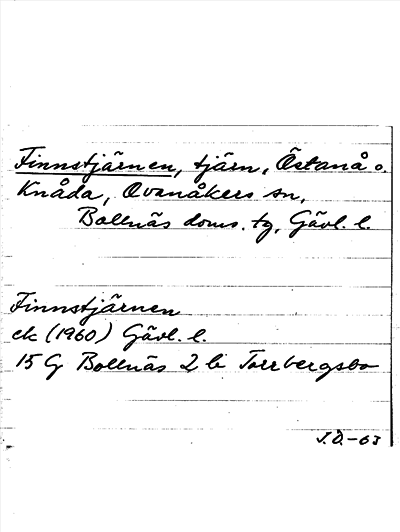 Finnstjärnen, tjärn, Östanå o.
Knåda, Ovanåkers sn,
Bollnäs doms. tg, Gävl. l.
Finnstjärnen
ek (1960) Gävl. l.
15 G Bollnäs 2 b Torrbergsbo
J.Ö.-63